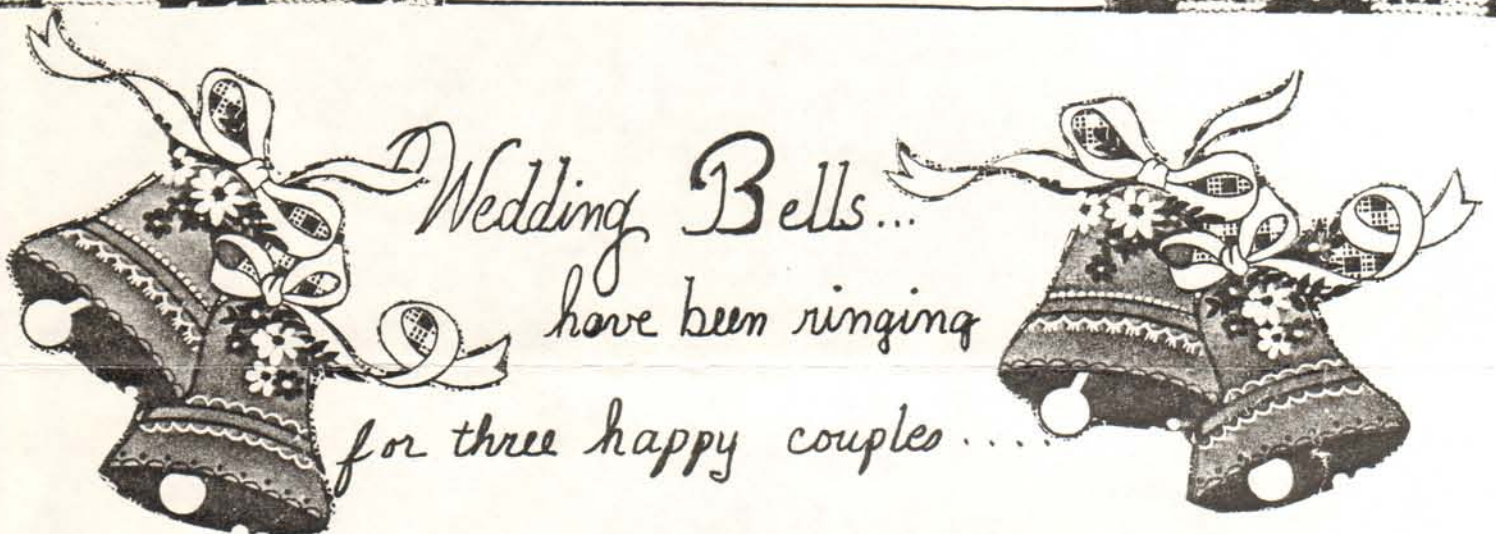 Wedding Bells...
have been ringing
for three happy couples.....